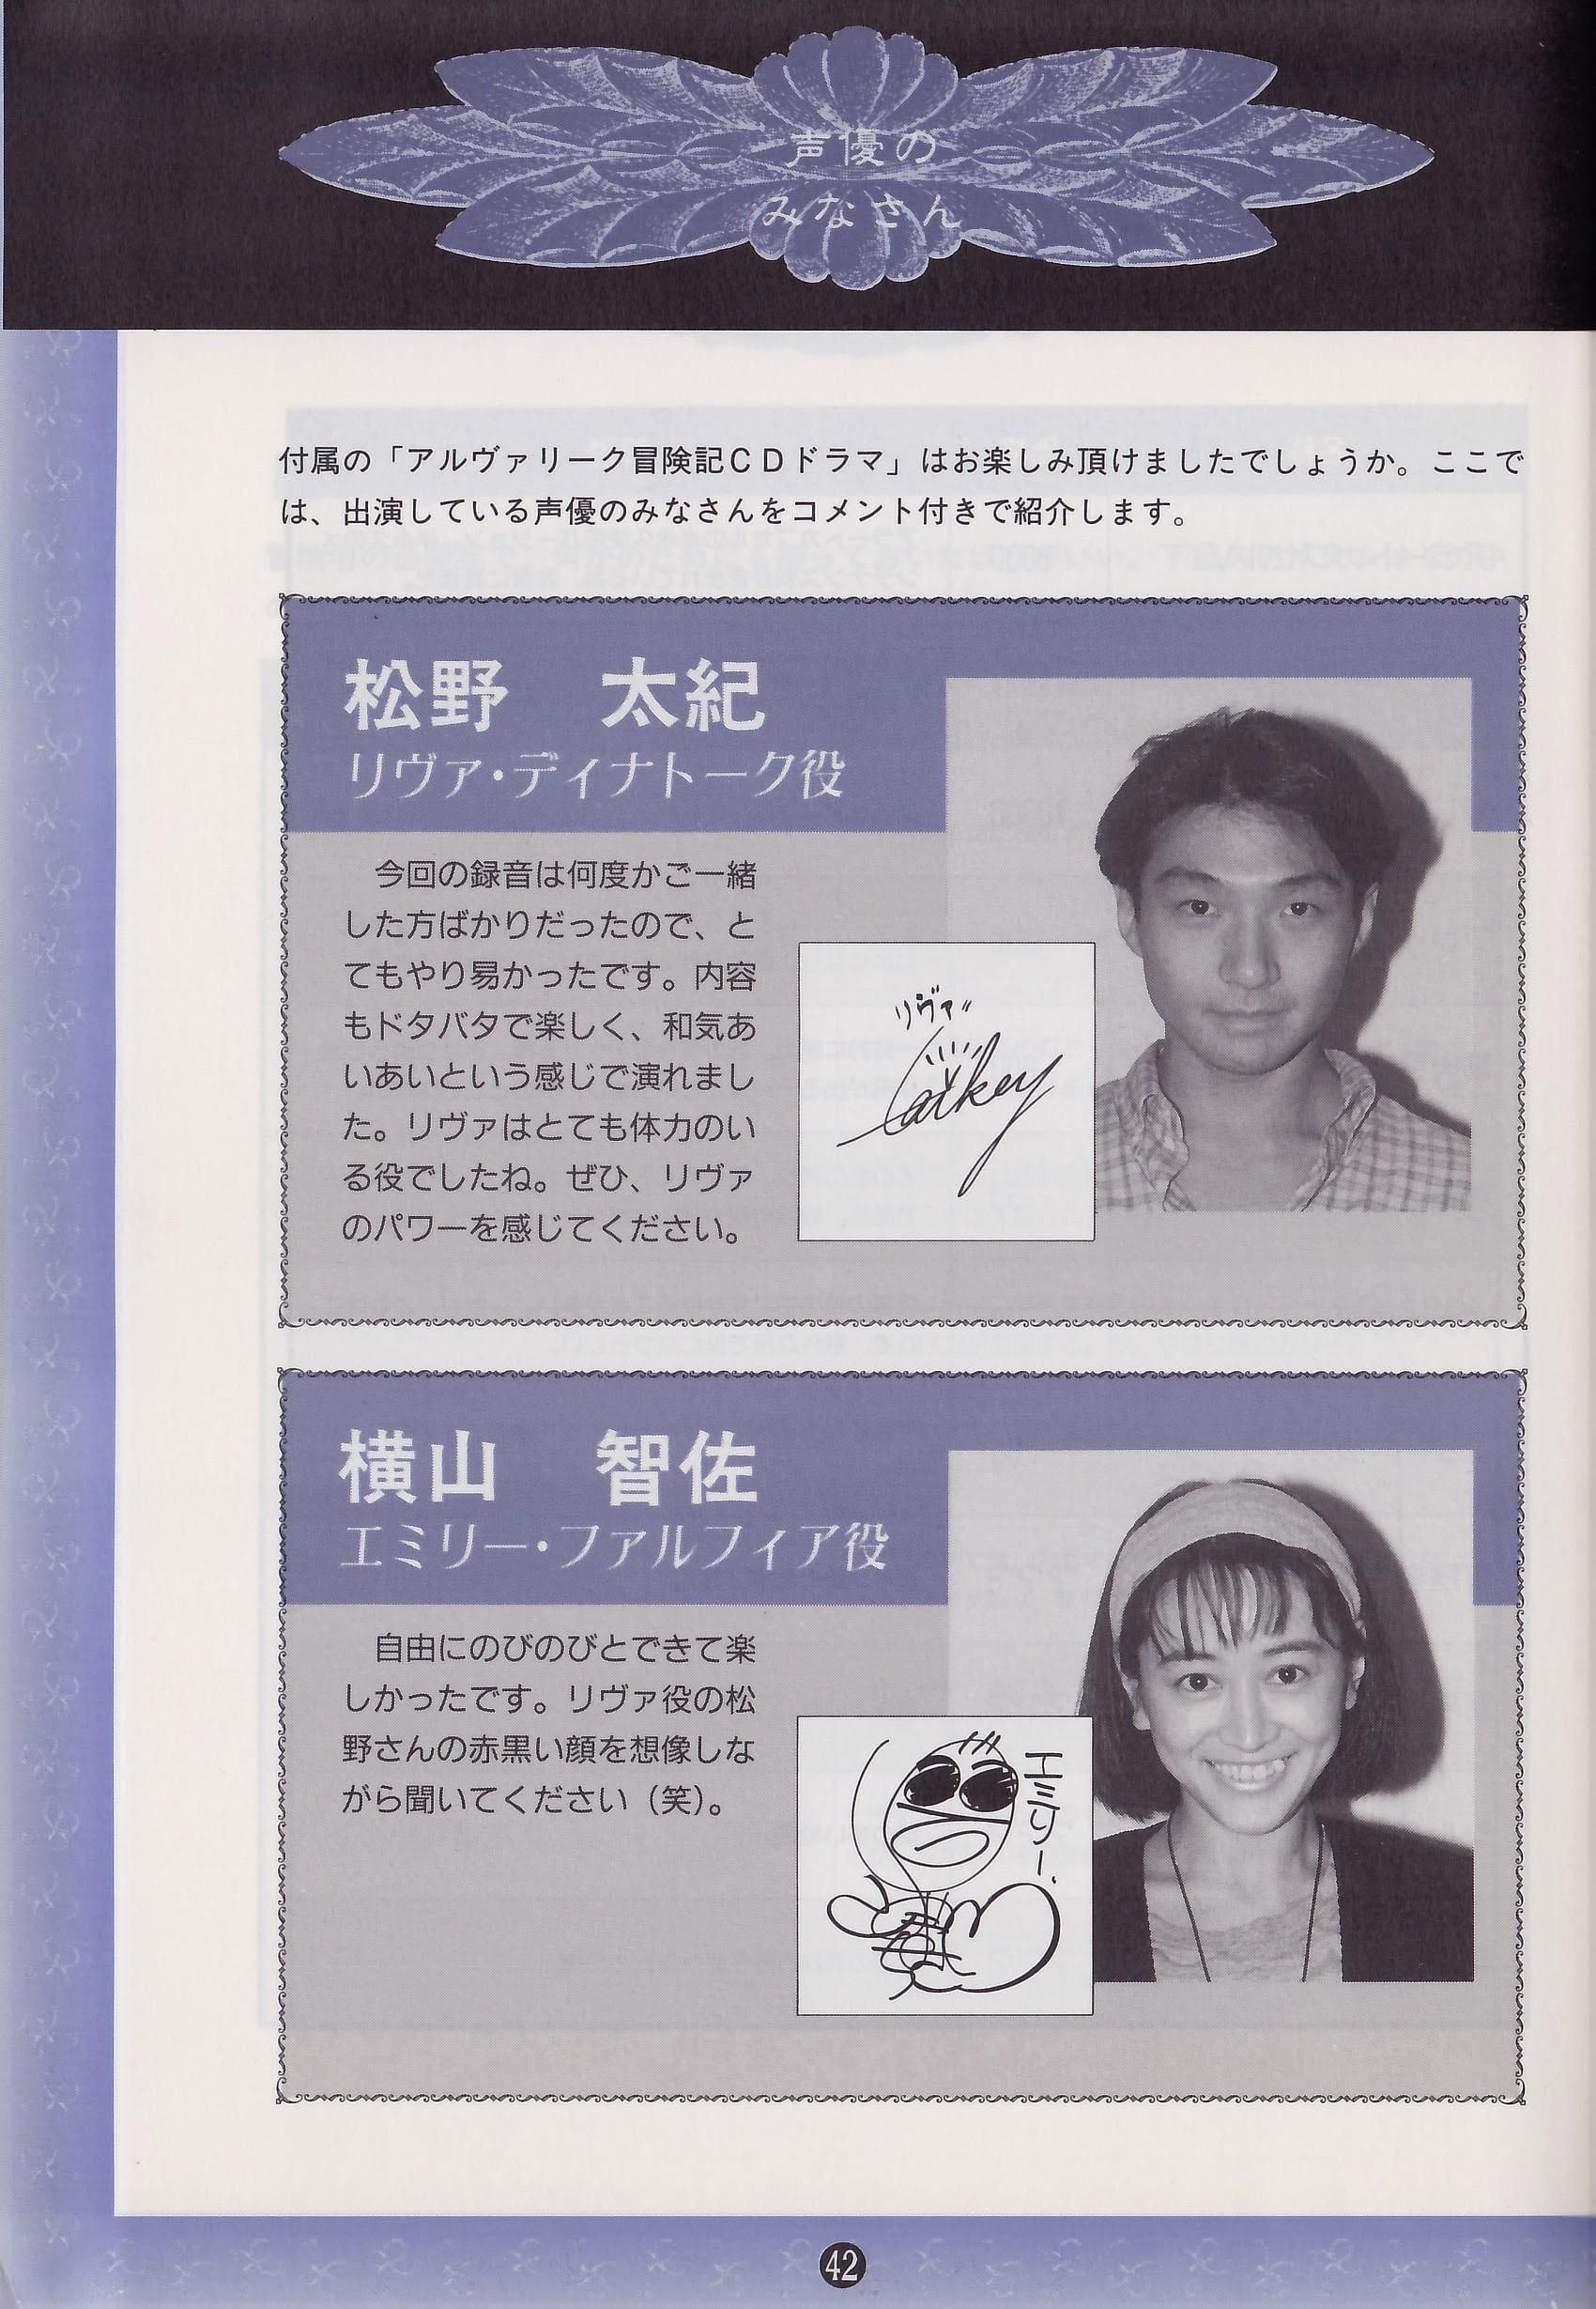 声優の
みなさん
付属の「アルヴァリーク冒険記ＣＤドラマ」はお楽しみ頂けましたでしょうか。ここで
は、出演している声優のみなさんをコメント付きで紹介します。
松野　太紀
リヴァ・ディナトーク役
今回の録音は何度かご一緒
した方ばかりだったので、と
てもやり易かったです。内容
もドタバタで楽しく、和気あ
いあいという感じで演れまし
た。リヴァはとても体力のい
る役でしたね。ぜひ、リヴァ
のパワーを感じてください。
リヴァ
横山　智佐
エミリー・ファルフィア役
自由にのびのびとできて楽
しかったです。リヴァ役の松
野さんの赤黒い顔を想像しな
がら聞いてください（笑）。
エミリー
42